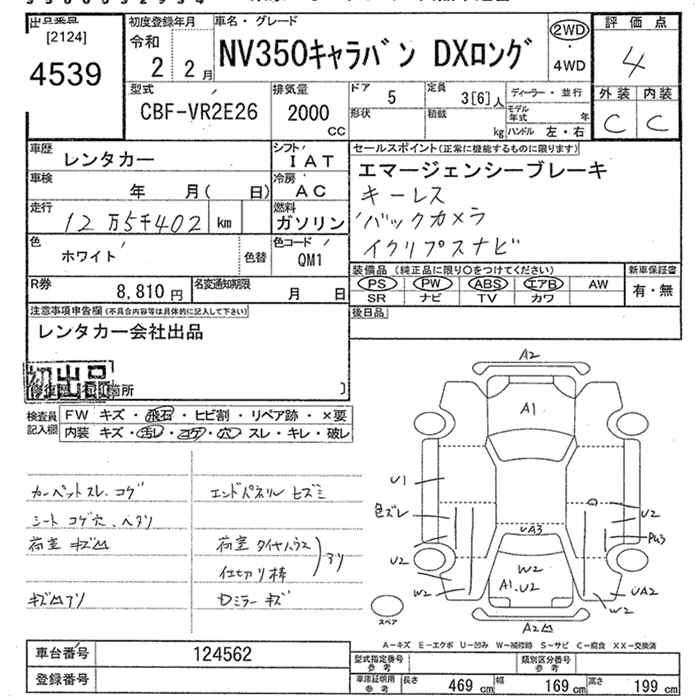 出品番号
[2124]
4539
初度登録年月
令和
2 2月
車名・グレード
NV350キャラバン DXロング
2WD
・
4WD
評価点
4
外装 内装
C C
型式
CBF-VR2E26
排気量
2000
CC
ドア
5
定員
3[6]人
形状
積載
kg
ディーラー・並行
モデル年式 年
ハンドル 左・右
車歴
レンタカー
シフト
IAT
車検
年 月( 日)
冷房
AC
走行
12万5千402 km
燃料
ガソリン
色
ホワイト
色替
色コード
QM1
R券
8,810円
名変通知期限
月 日
セールスポイント(正常に機能するものに限ります)
エマージェンシーブレーキ
キーレス
バックカメラ
イクリプスナビ
装備品 (純正品に限り○をつけてください)
PS PW ABS エアB AW
SR ナビ TV カワ
新車保証書
有・無
後日品
注意事項申告欄(不具合内容等は具体的に記入して下さい)
レンタカー会社出品
初出品
検査員記入欄
FW キズ・飛石・ヒビ割・リペア跡・×要
内装 キズ・汚レ・コゲ・穴・スレ・キレ・破レ
カーペットスレ、コゲ
シート コゲ穴、ヘタリ
荷室 キズ凹
キズ凹アリ
エンドパネル ヒズミ
荷室 タイヤハウス
仕切り棒
アリ
Dミラー キズ
A2
A1
U1
色ズレ
U2
W2
UA3
W2
A1、U2
U2
PU3
UA2
W2
A2凹
スペア
A－キズ E－エクボ U－凹み W－補修跡 S－サビ C－腐食 XX－交換済
車台番号
124562
登録番号
型式指定番号
参考
類別区分番号
参考
車庫証明用
参考
長さ 469 cm 幅 169 cm 高さ 199 cm